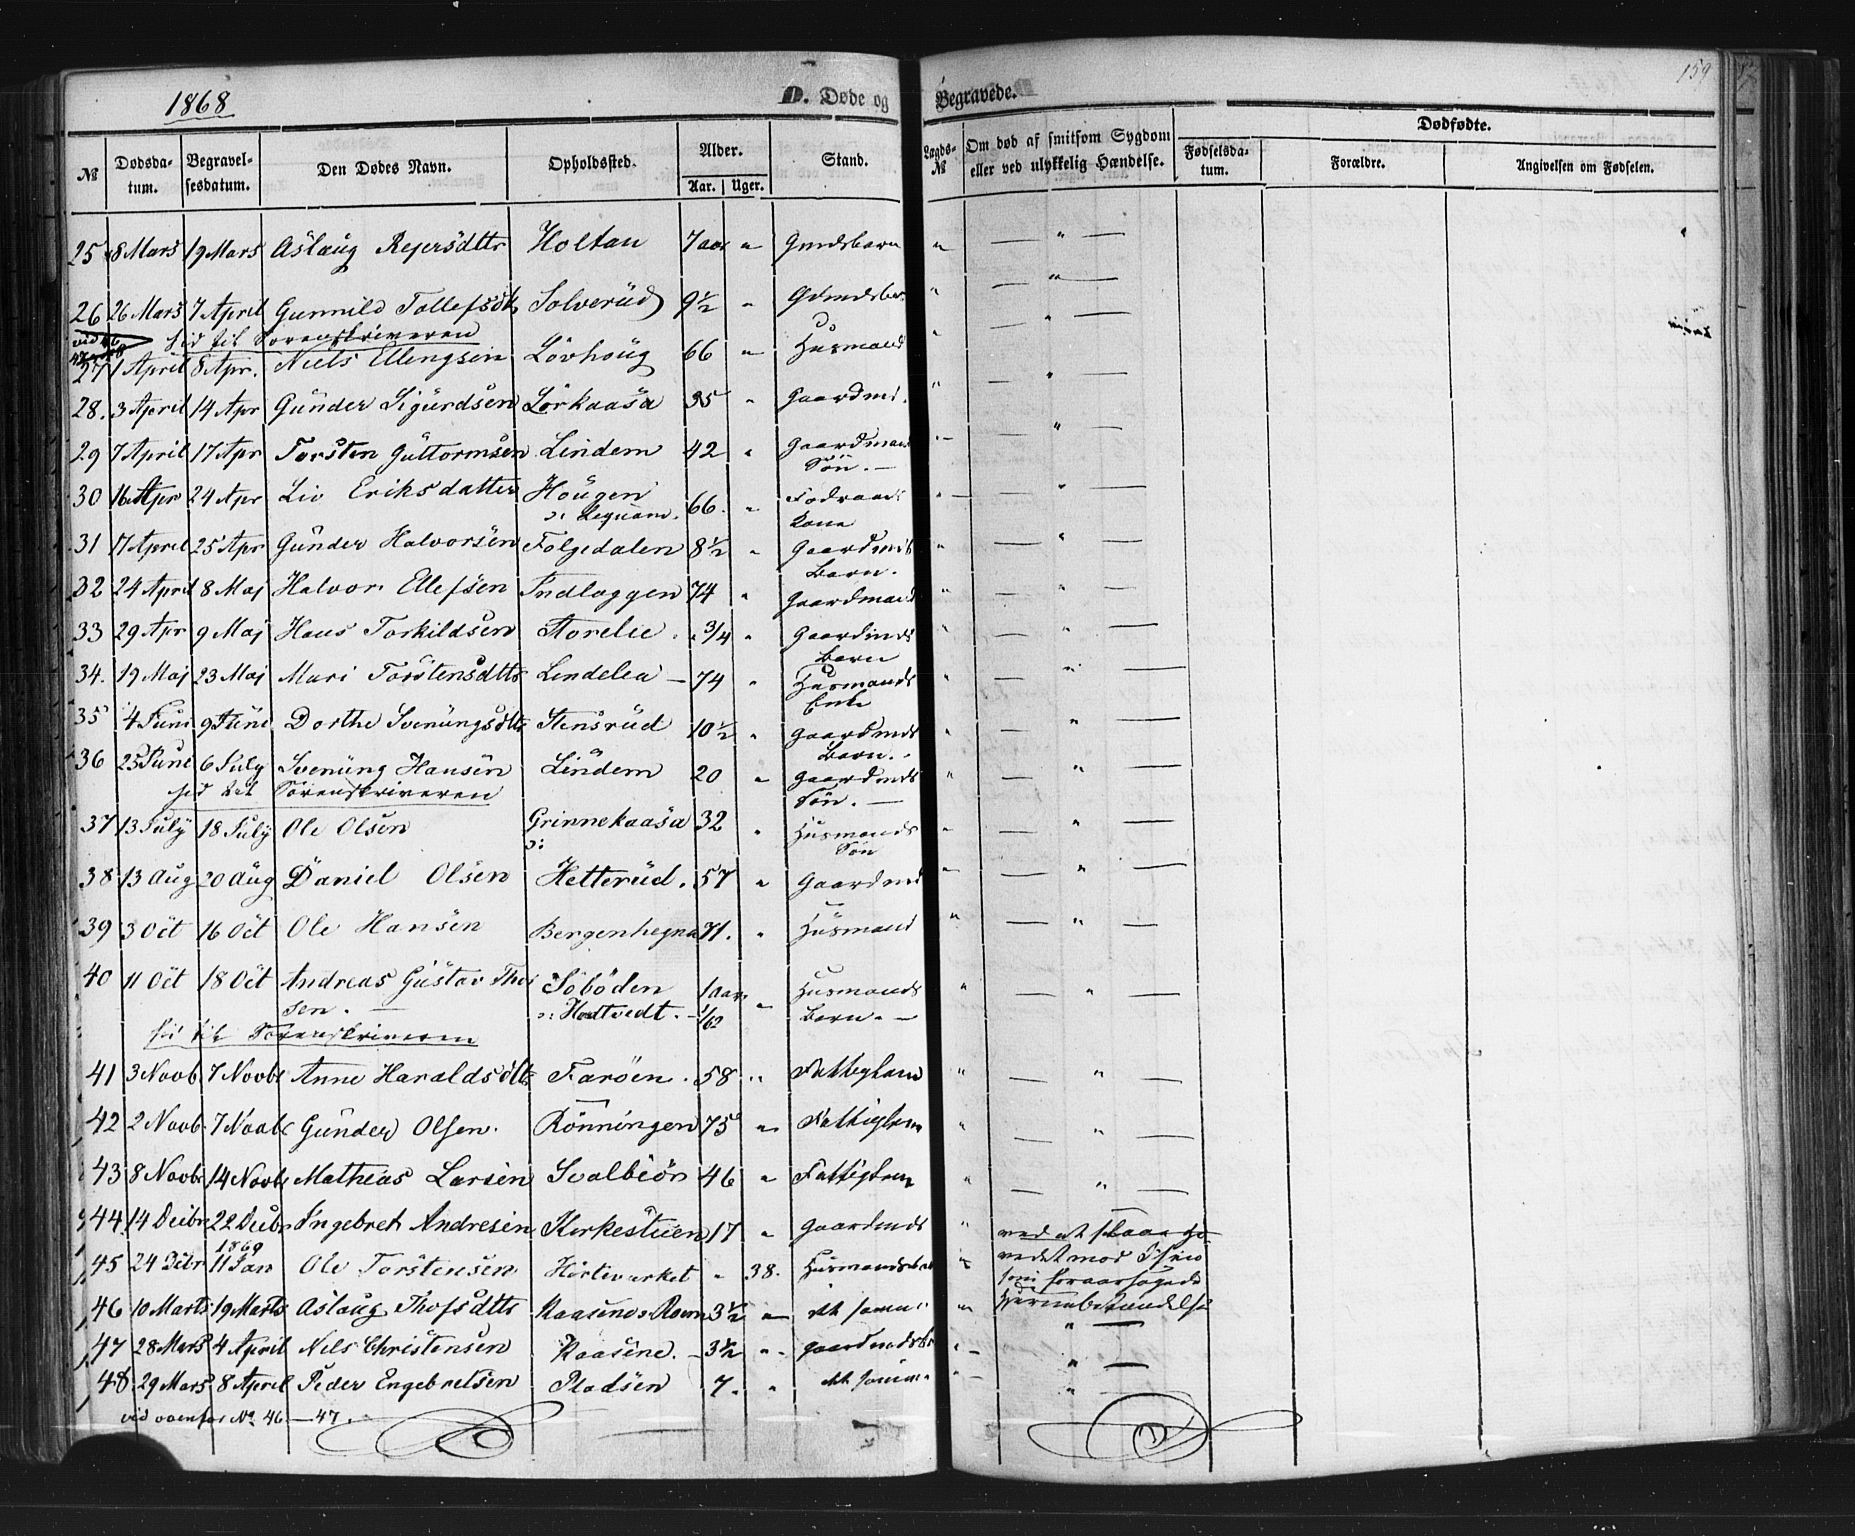 1868
D. Døde og Begravede.
159
№ Dødsdatum. Begravelsesdatum. Den Dødes Navn. Opholdssted. Alder. Aar. Uger. Stand. Lægds-№ Om død af smitsom Sygdom eller ved ulykkelig Hændelse. Dødfødte. Fødselsdatum. Forældre. Angivelsen om Fødselen.
25 8 Mars 19 Mars Aslaug Rejersdttr Holtan 7 aar " Gmdsbarn " — " —
26 26 Mars 7 April Gunnild Tollefsdtr Solverud 9½ " " — " —
hid til Sorenskriveren
27 1 April 8 Apr. Niels Ellingsen Lövhoug 66 " Husmand " — " —
28. 3 April 14 Apr Gunder Sigurdsen Lörkaasa 35 " Gaardmd. " — " —
29 7 April 17 Apr Torsten Guttormsen Lindem 42 " Gaardmands " — " —
Sön. —
30 16 Apr 24 Apr Liv Eriksdatter Hougen 66. " " — " —
Kone
31 17 April 25 Apr Gunder Halvorsen Folgedalen 8½ " Gaardmds " — " —
Barn.
32 24 April 8 Maj Halvor Ellefsen Indlaggen 74 " Gaardmand " — " —
33 29 Apr 9 Maj Hans Torkildsen Storelie " ¾ " Gaardmds " — " —
Barn
34. 19 Maj 23 Maj Mari Torstensdttr Lindelia — 74 " Husmands " — " —
Enke
35 4 Juni 9 Juni Dorthe Svenungsdttr Stensrud 10½ " Gaardmds " — " —
Barn.
36 25 June 6 July Svenung Hansen Lindem 20 " Gaardmds " — " —
hid til Sorenskriveren Sön. —
37 13 July 18 July Ole Olsen Grinnekaasa 32 " Husmands " — " —
Sön
38 13 Aug 20 Aug Daniel Olsen Hetterud. 57 " Gaardmd " — " —
39 3 Oct 16 Oct Ole Hansen Bergenhegna 71. " Husmand " — " —
40 11 Oct 18 Oct Andreas Gustav Thor Söboden 1 aar " Husmands " — " —
sen. — ɔ: Hodtvedt. Barn. —
hid til Sorenskriveren
41 3 Novb. 7 Novbr Anne Haraldsdttr Faröen. 58 " Fattiglem " — " —
42 2 Novb. 7 Novbr Gunder Olsen. Rönningen 75 " Fattiglem " — " —
43 8 Novbr 14 Novbr Mathias Larsen Svalbiör 46 " Fattiglem " — " —
44. 14 Decbr 22 Decbr Ingebret Andresen Kirkestuen 17 " Gaardmds " ved at slaae Ho-
1869
45 24 Dcbr 11 Jan Ole Torstensen Hörteverket " 38. Husmandsbarn " vedet mod Isen
som foraarsagede
46 10 Marts 19 Marts Aslaug Thofsdttr Kaasene Roen 3½ " dt samme " Hjernebetændelse
" —
47 28 Mars 4 April Nils Christensen Kaasene. — 3½ " " —
48 29 Mars 8 April Peder Engebretsen Pladsen 7. " dt samme " "
vid ovenfor № 46 — 47.